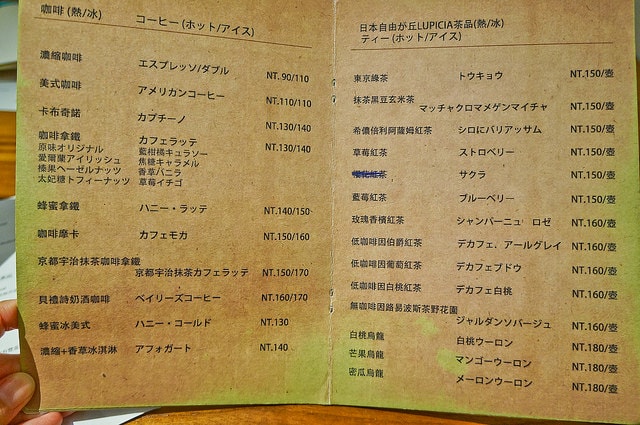 咖啡 (熱/冰) コーヒー (ホット/アイス)
濃縮咖啡 エスプレッソ/ダブル NT. 90/110
美式咖啡 アメリカンコーヒー NT.110/110
卡布奇諾 カプチーノ NT.130/140
咖啡拿鐵 カフェラッテ NT.130/140
原味オリジナル 藍柑橘キュラソー
愛爾蘭アイリッシュ 焦糖キャラメル
榛果ヘーゼルナッツ 香草バニラ
太妃糖トフィーナッツ 草莓イチゴ
蜂蜜拿鐵 ハニー・ラッテ NT.140/150
咖啡摩卡 カフェモカ NT.150/160
京都宇治抹茶咖啡拿鐵
京都宇治抹茶カフェラッテ NT.150/170
貝禮詩奶酒咖啡 ベイリーズコーヒー NT.160/170
蜂蜜冰美式 ハニー・コールド NT.130
濃縮+香草冰淇淋 アフォガート NT.140
日本自由が丘LUPICIA茶品(熱/冰)
ティー (ホット/アイス)
東京綠茶 トウキョウ NT.150/壺
抹茶黑豆玄米茶
マッチャクロマメゲンマイチャ NT.150/壺
希儂倍利阿薩姆紅茶 シロにバリアッサム NT.150/壺
草莓紅茶 ストロベリー NT.150/壺
サクラ NT.150/壺
藍莓紅茶 ブルーベリー NT.150/壺
玫瑰香檳紅茶 シャンパーニュ ロゼ NT.160/壺
低咖啡因伯爵紅茶 デカフェ、アールグレイ NT.160/壺
低咖啡因葡萄紅茶 デカフェブドウ NT.160/壺
低咖啡因白桃紅茶 デカフェ白桃 NT.160/壺
無咖啡因路易波斯茶野花園
ジャルダンソバージュ NT.160/壺
白桃烏龍 白桃ウーロン NT.180/壺
芒果烏龍 マンゴーウーロン NT.180/壺
密瓜烏龍 メーロンウーロン NT.180/壺